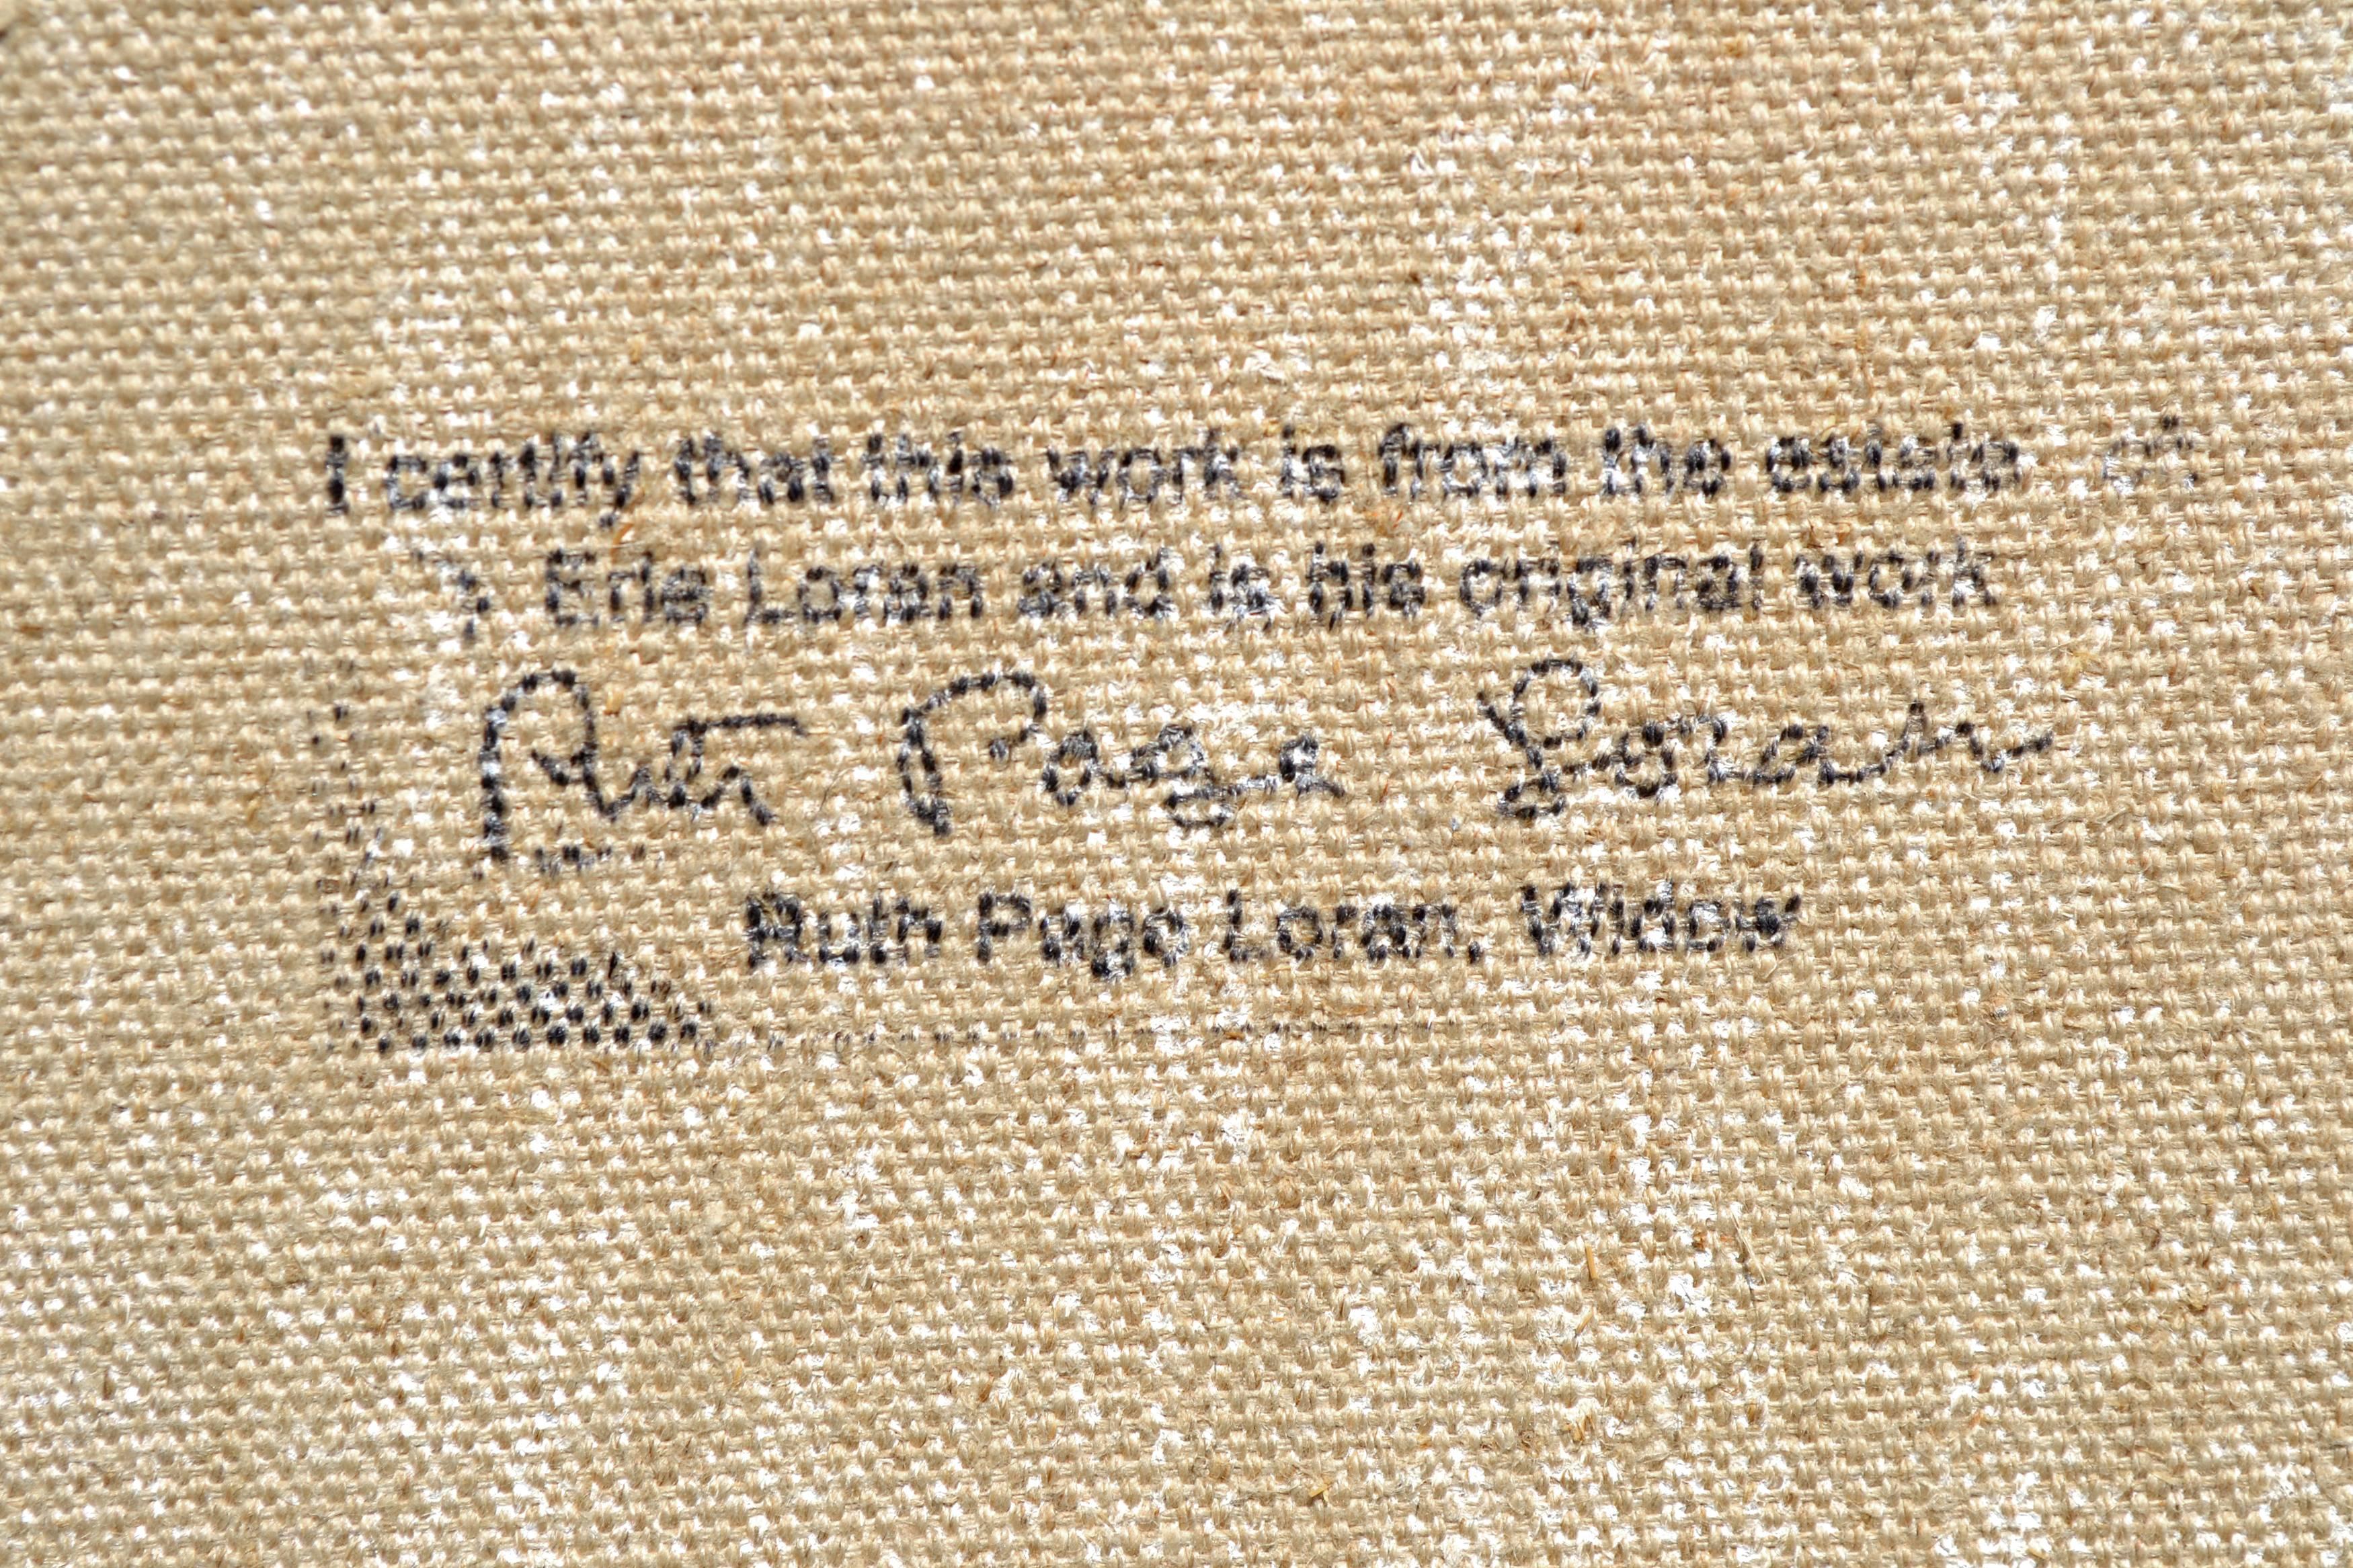 I certify that this work is from the estate of
Erle Loran and is his original work
Ruth Page Loran
Ruth Page Loran, Widow